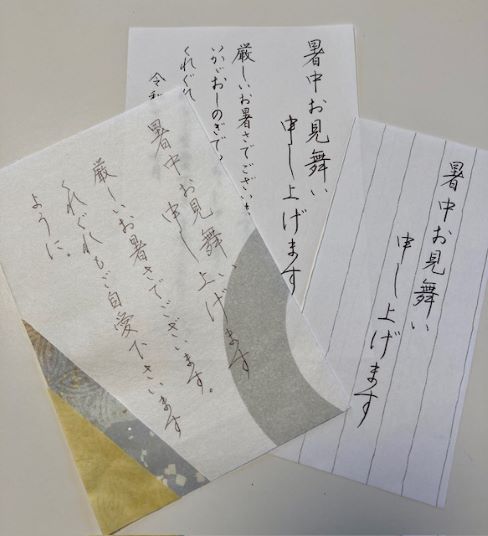 暑中お見舞い
申し上げます
厳しいお暑さでございま
いかがおしのぎで
くれぐれ
令和
暑中お見舞い
申し上げます
暑中お見舞い
申し上げます
厳しいお暑さでございます。
くれぐれもご自愛下さいます
ように。